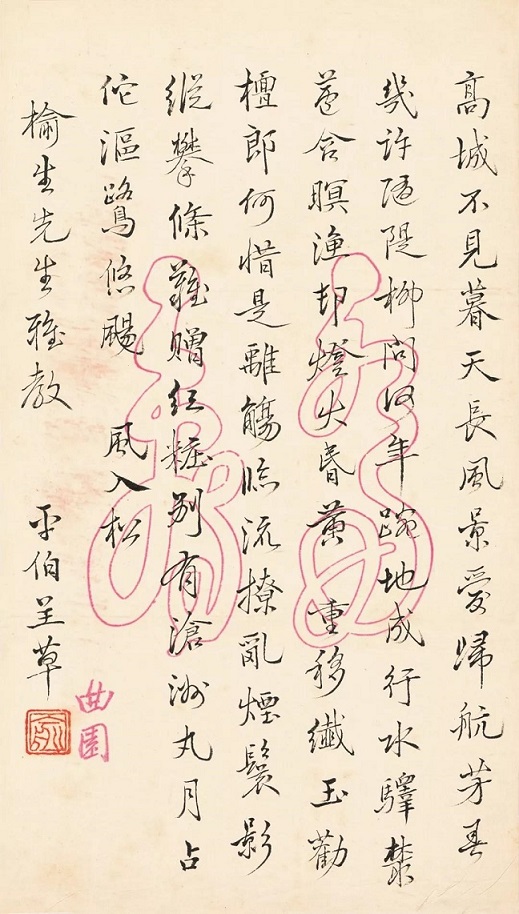 高城不見暮天長風景愛歸航芳
幾許隋隄柳問何年踠地成行水驛叢
蘆含暝漁邨燈火昏黃 重移纖玉勸
檀郎何惜是離觴臨流撩亂煙鬟影
縱攀條難贈紅糚別有滄洲丸月占
佗漚鷺悠颺 風入松
榆生先生雅教 平伯呈草
曲園